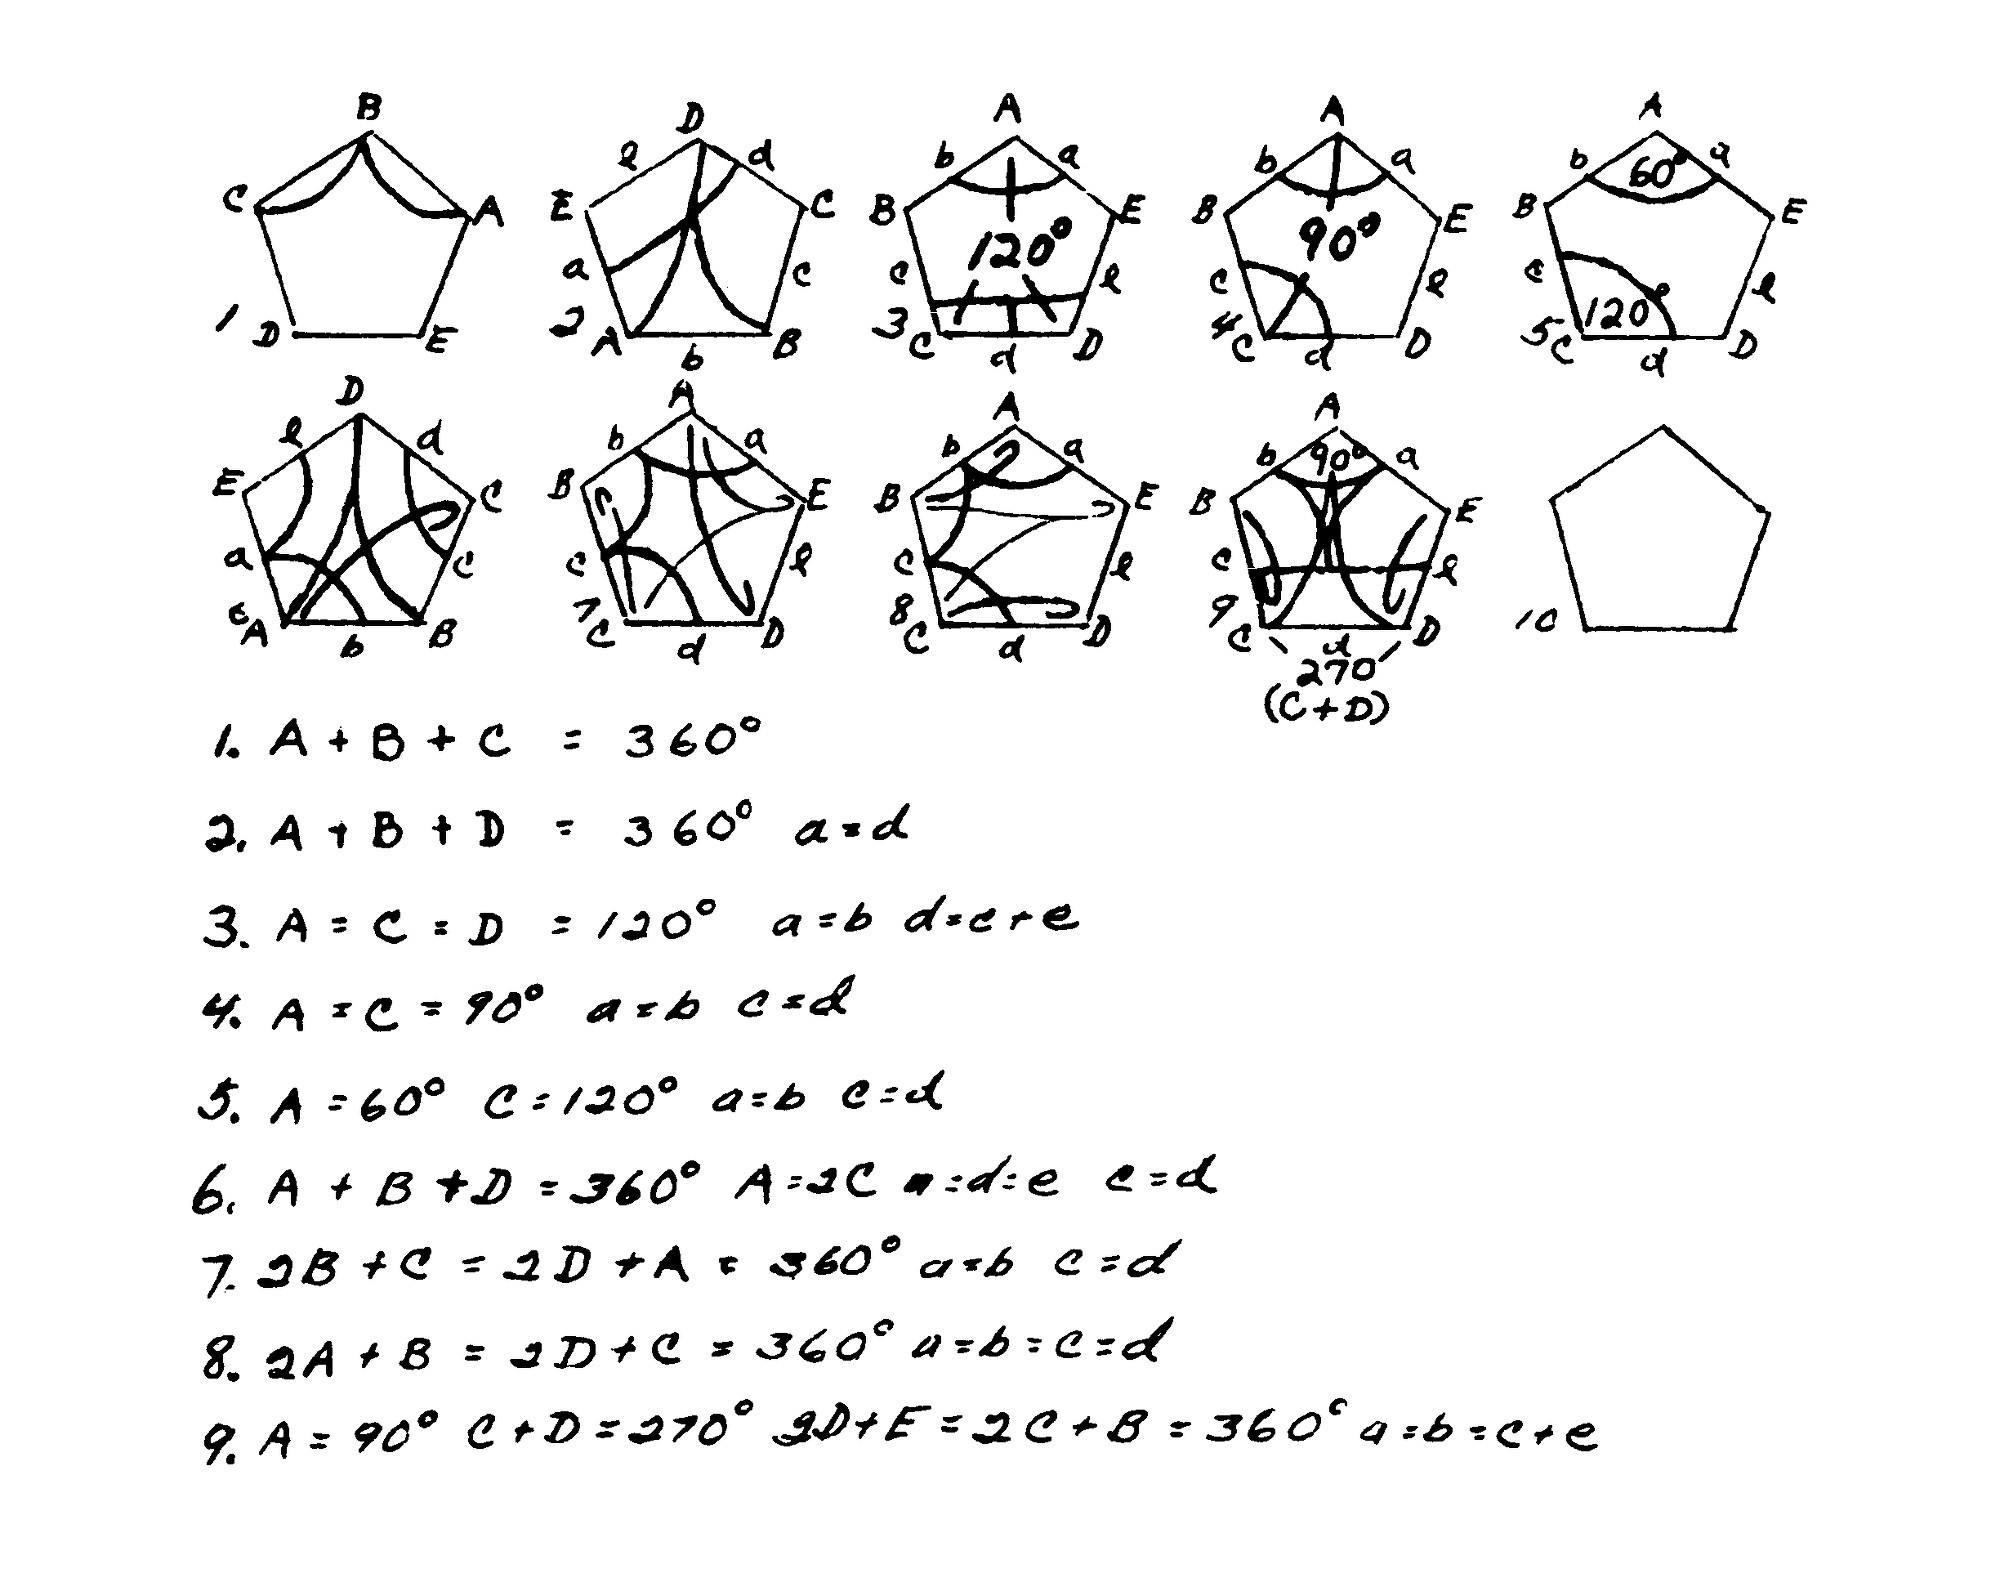 B
C A
1 D E
D
e d
E C
a c
2 A b B
A
b a
B E
120°
c e
3 C d D
A
b a
B E
90°
c e
4 C d D
A
b 60° a
B E
c e
5 C 120° d D
D
e d
E C
a c
6 A b B
A
b a
B E
c e
7 C d D
A
b a
B E
c e
8 C d D
A
b 90° a
B E
c e
9 C d D
270
(C+D)
10
1. A + B + C = 360°
2. A + B + D = 360° a=d
3. A = C = D = 120° a=b d=c+e
4. A = C = 90° a=b c=d
5. A = 60° C = 120° a=b c=d
6. A + B + D = 360° A=2C a=d=e c=d
7. 2B + C = 2D + A = 360° a=b c=d
8. 2A + B = 2D + C = 360° a=b=c=d
9. A = 90° C + D = 270° 2D+E = 2C + B = 360° a=b=c+e